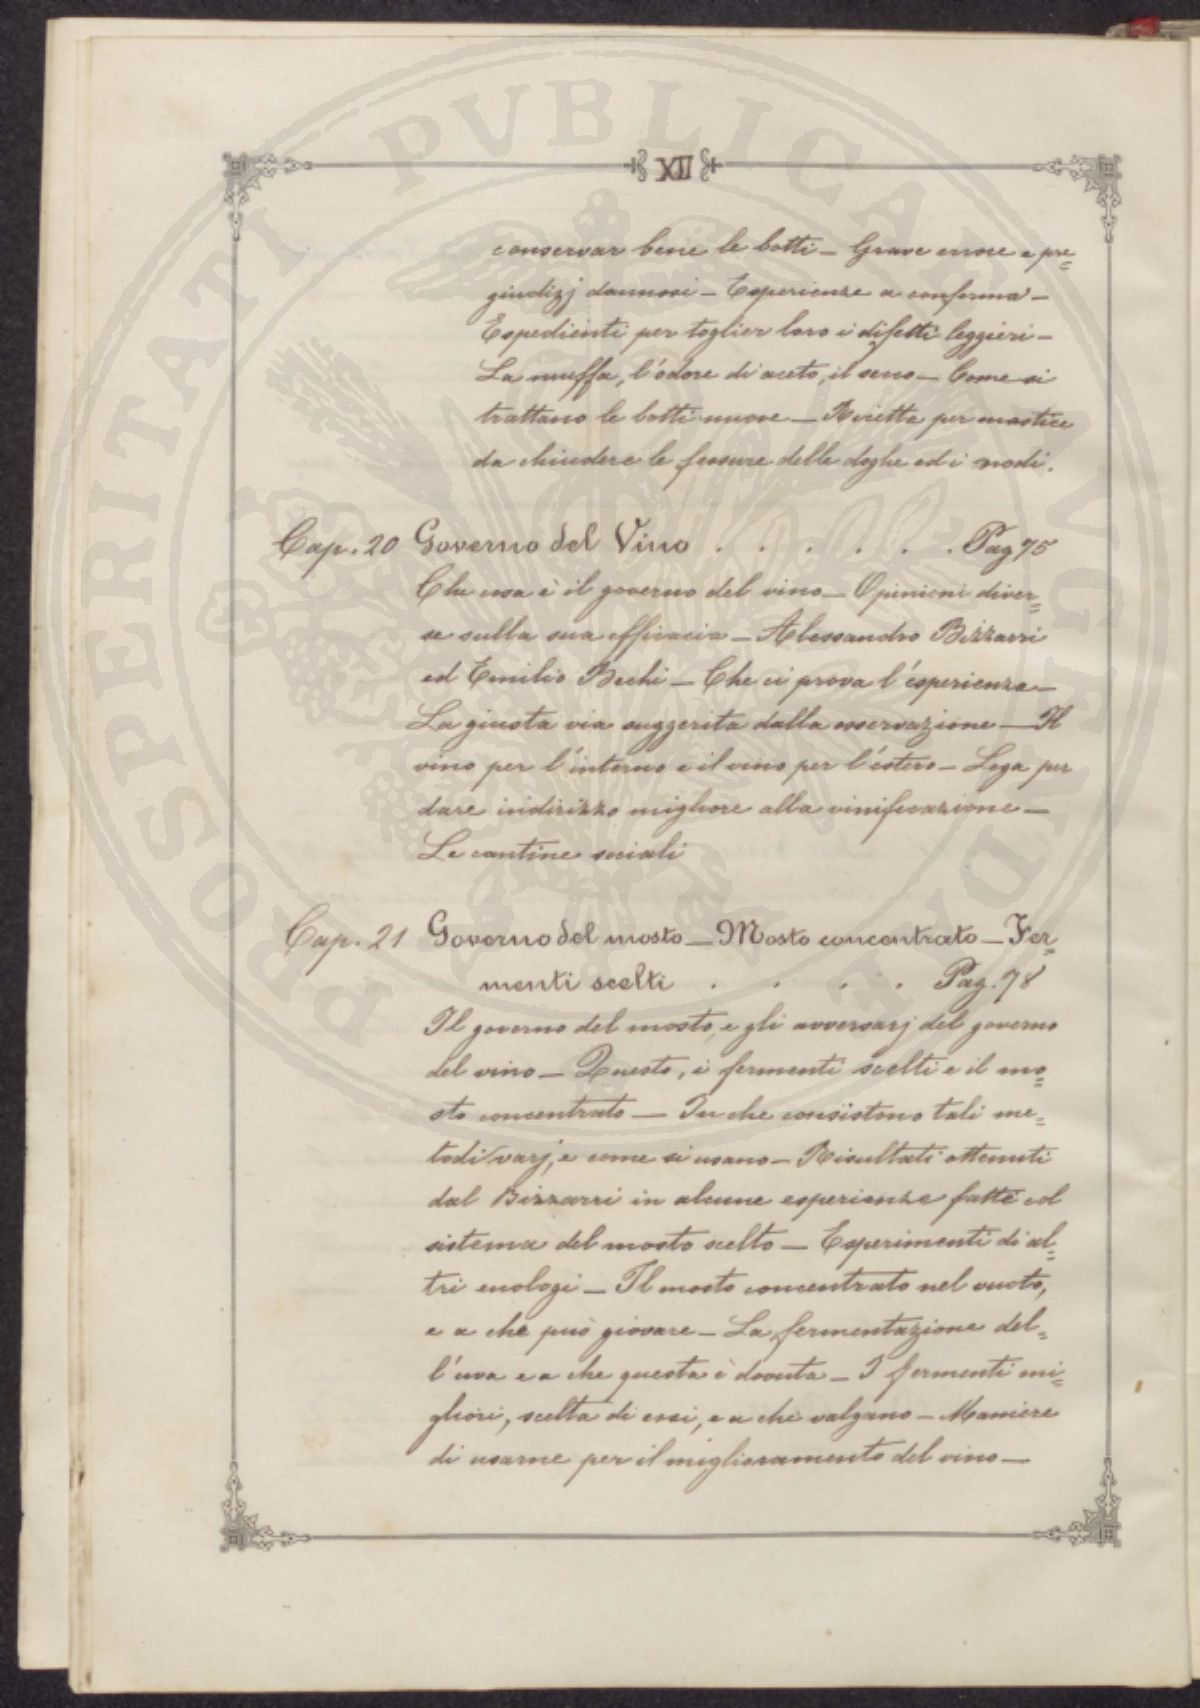 XII
conservar bene le botti _ Grave errore e pre=
giudizj dannosi _ Esperienze a conferma _
Espedienti per toglier loro i difetti leggieri _
La muffa, l'odore di aceto, il secco _ Come si
trattano le botti nuove _ Ricetta per mastice
da chiudere le fessure delle doghe ed i nodi.
Cap. 20 Governo del Vino . . . . . . Pag 75
Che cosa è il governo del vino _ Opinioni diver=
se sulla sua efficacia _ Alessandro Bizzarri
ed Emilio Bechi _ Che ci prova l'esperienza _
La giusta via suggerita dalla osservazione _ Il
vino per l'interno e il vino per l'estero _ Lega per
dare indirizzo migliore alla vinificazione _
Le cantine sociali
Cap. 21 Governo del mosto _ Mosto concentrato _ Fer=
menti scelti . . . . Pag. 78
Il governo del mosto, e gli avversarj del governo
del vino _ Questo, i fermenti scelti e il mo=
sto concentrato _ In che consistono tali me=
todi varj, e come si usano _ Risultati ottenuti
dal Bizzarri in alcune esperienze fatte col
sistema del mosto scelto _ Esperimenti di al=
tri enologi _ Il mosto concentrato nel vuoto,
e a che può giovare _ La fermentazione del=
l'uva e a che questa è dovuta _ I fermenti mi=
gliori, scelta di essi, e a che valgano _ Maniere
di usarne per il miglioramento del vino _
PROSPERITATI PUBLICAE AUGENDAE